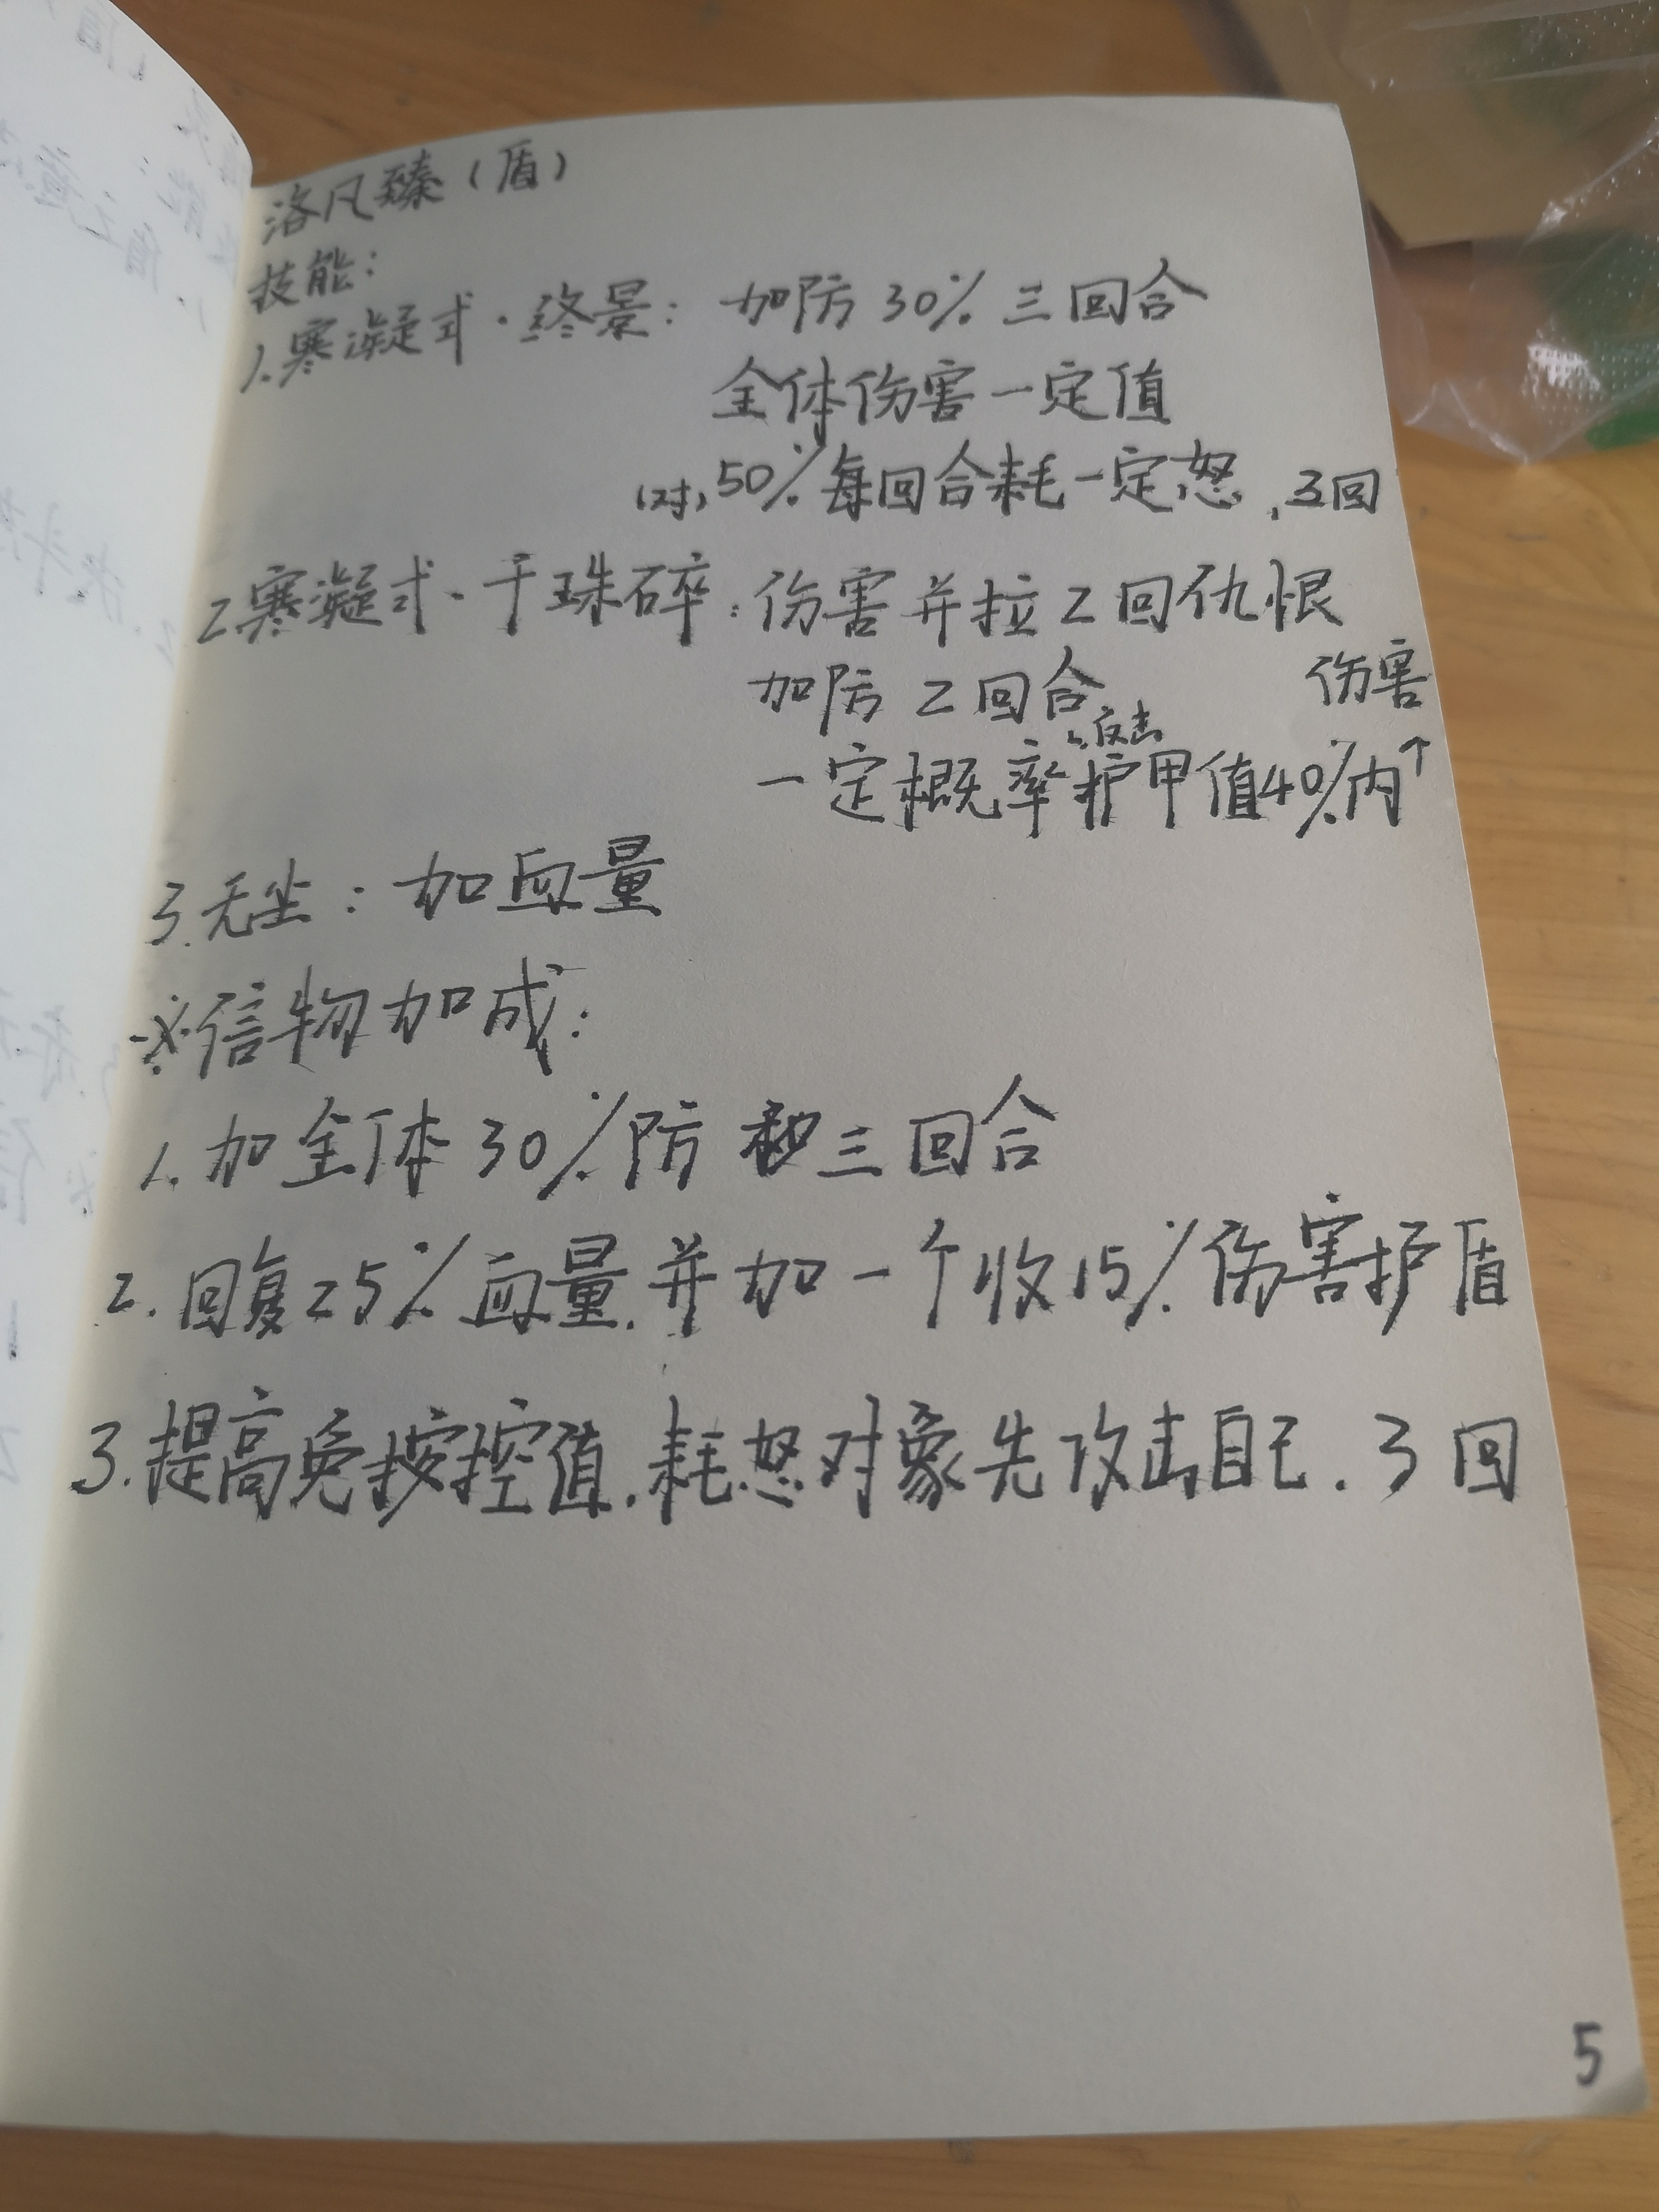 洛凡臻（盾）
技能：
1.寒凝式·终景：加防30%三回合
全体伤害一定值
（对）50%每回合耗一定怒，3回
2.寒凝式·千珠碎：伤害并拉2回仇恨
加防2回合
伤害
反击
一定概率护甲值40%内↑
3.无尘：加血量
※信物加成：
1.加全体30%防 三回合
2.回复25%血量.并加一个收15%伤害护盾
3.提高免控值.耗怒对象先攻击自己.3回
5